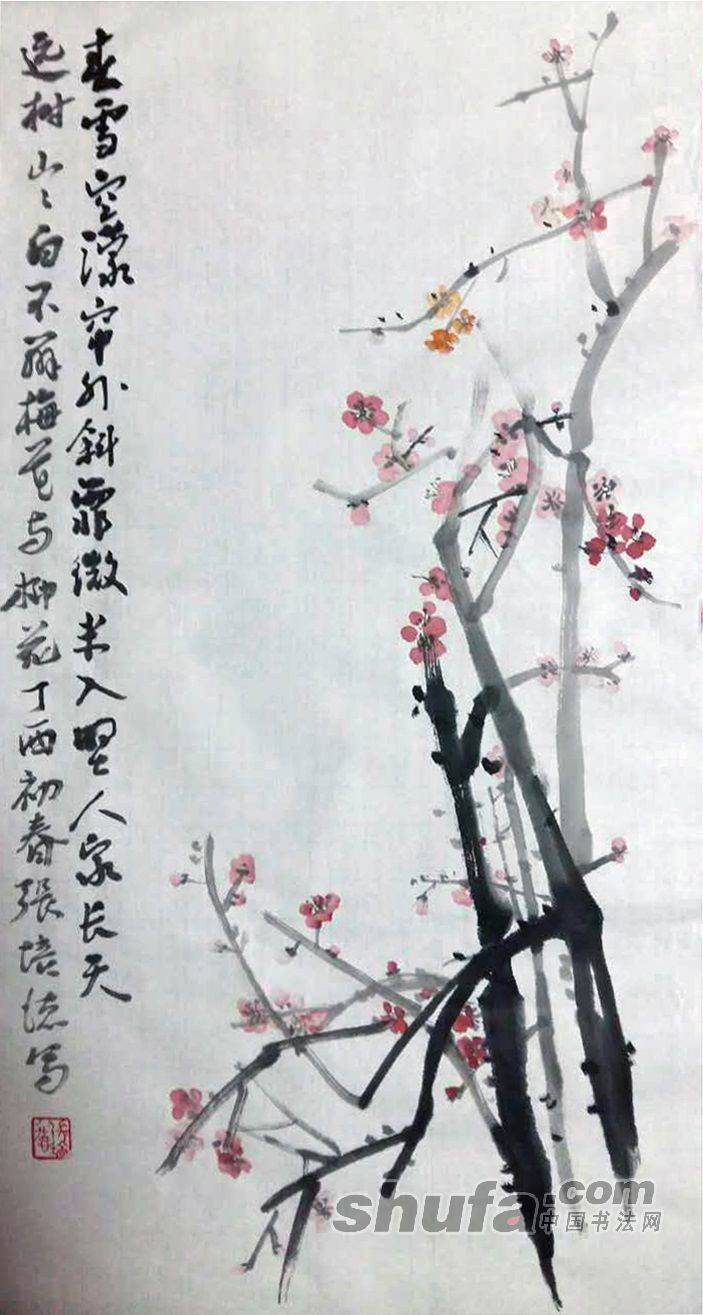 春雪空濛帘外斜霏微半入野人家长天
远树山〻白不辨梅花与柳花丁酉初春張培写
shufa.com
中国书法网